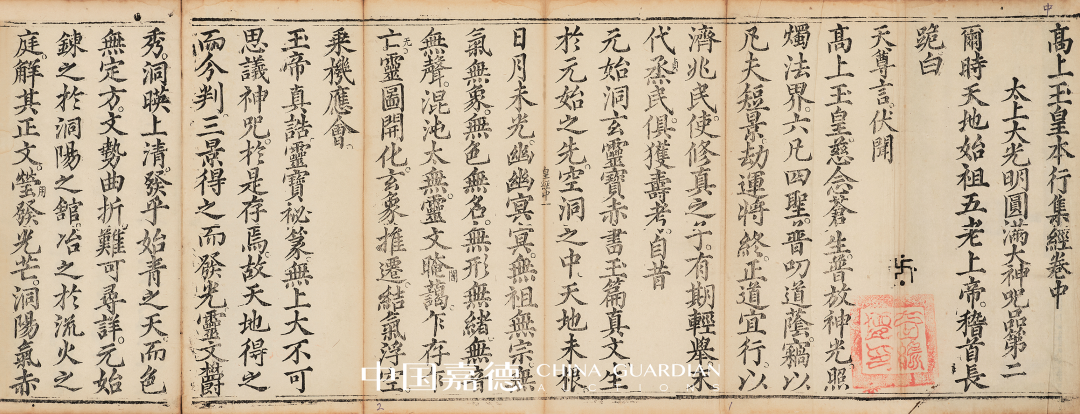 高上玉皇本行集經卷中
太上大光明圓滿大神咒品第二
爾時天地始祖五老上帝。稽首長
跪白
天尊言。伏聞
高上玉皇慈念蒼生普放神光照
燭法界。六凡四聖。普叨道蔭。竊以
凡夫短景。劫運將終。正道宜行。以
濟兆民。使修真之子。有期輕舉。末
代烝民。俱獲壽考。自昔
元始洞玄靈寶赤書玉篇真文。生
於元始之先。空洞之中。天地未根
日月未光。幽幽冥冥。無祖無宗。無
氣無象。無色無名。無形無緒。無音
無聲。混沌太無。靈文晻藹。乍存乍
亡。靈圖開化。玄象推遷。結氣浮空
乘機應會。
玉帝真誥。靈寶祕篆。無上大不可
思議神咒。於是存焉。故天地得之
而今判。三景得之而發光。靈文鬱
秀。洞暎上清。發乎始青之天。而色
無定方。文勢曲折。難可尋詳。元始
鍊之於洞陽之館。冶之於流火之
庭。鮮其正文。瑩發光芒。洞陽氣赤
中
卐
皇經中一
无
用
1
2
中国嘉德
CHINA GUARDIAN
AUCTIONS